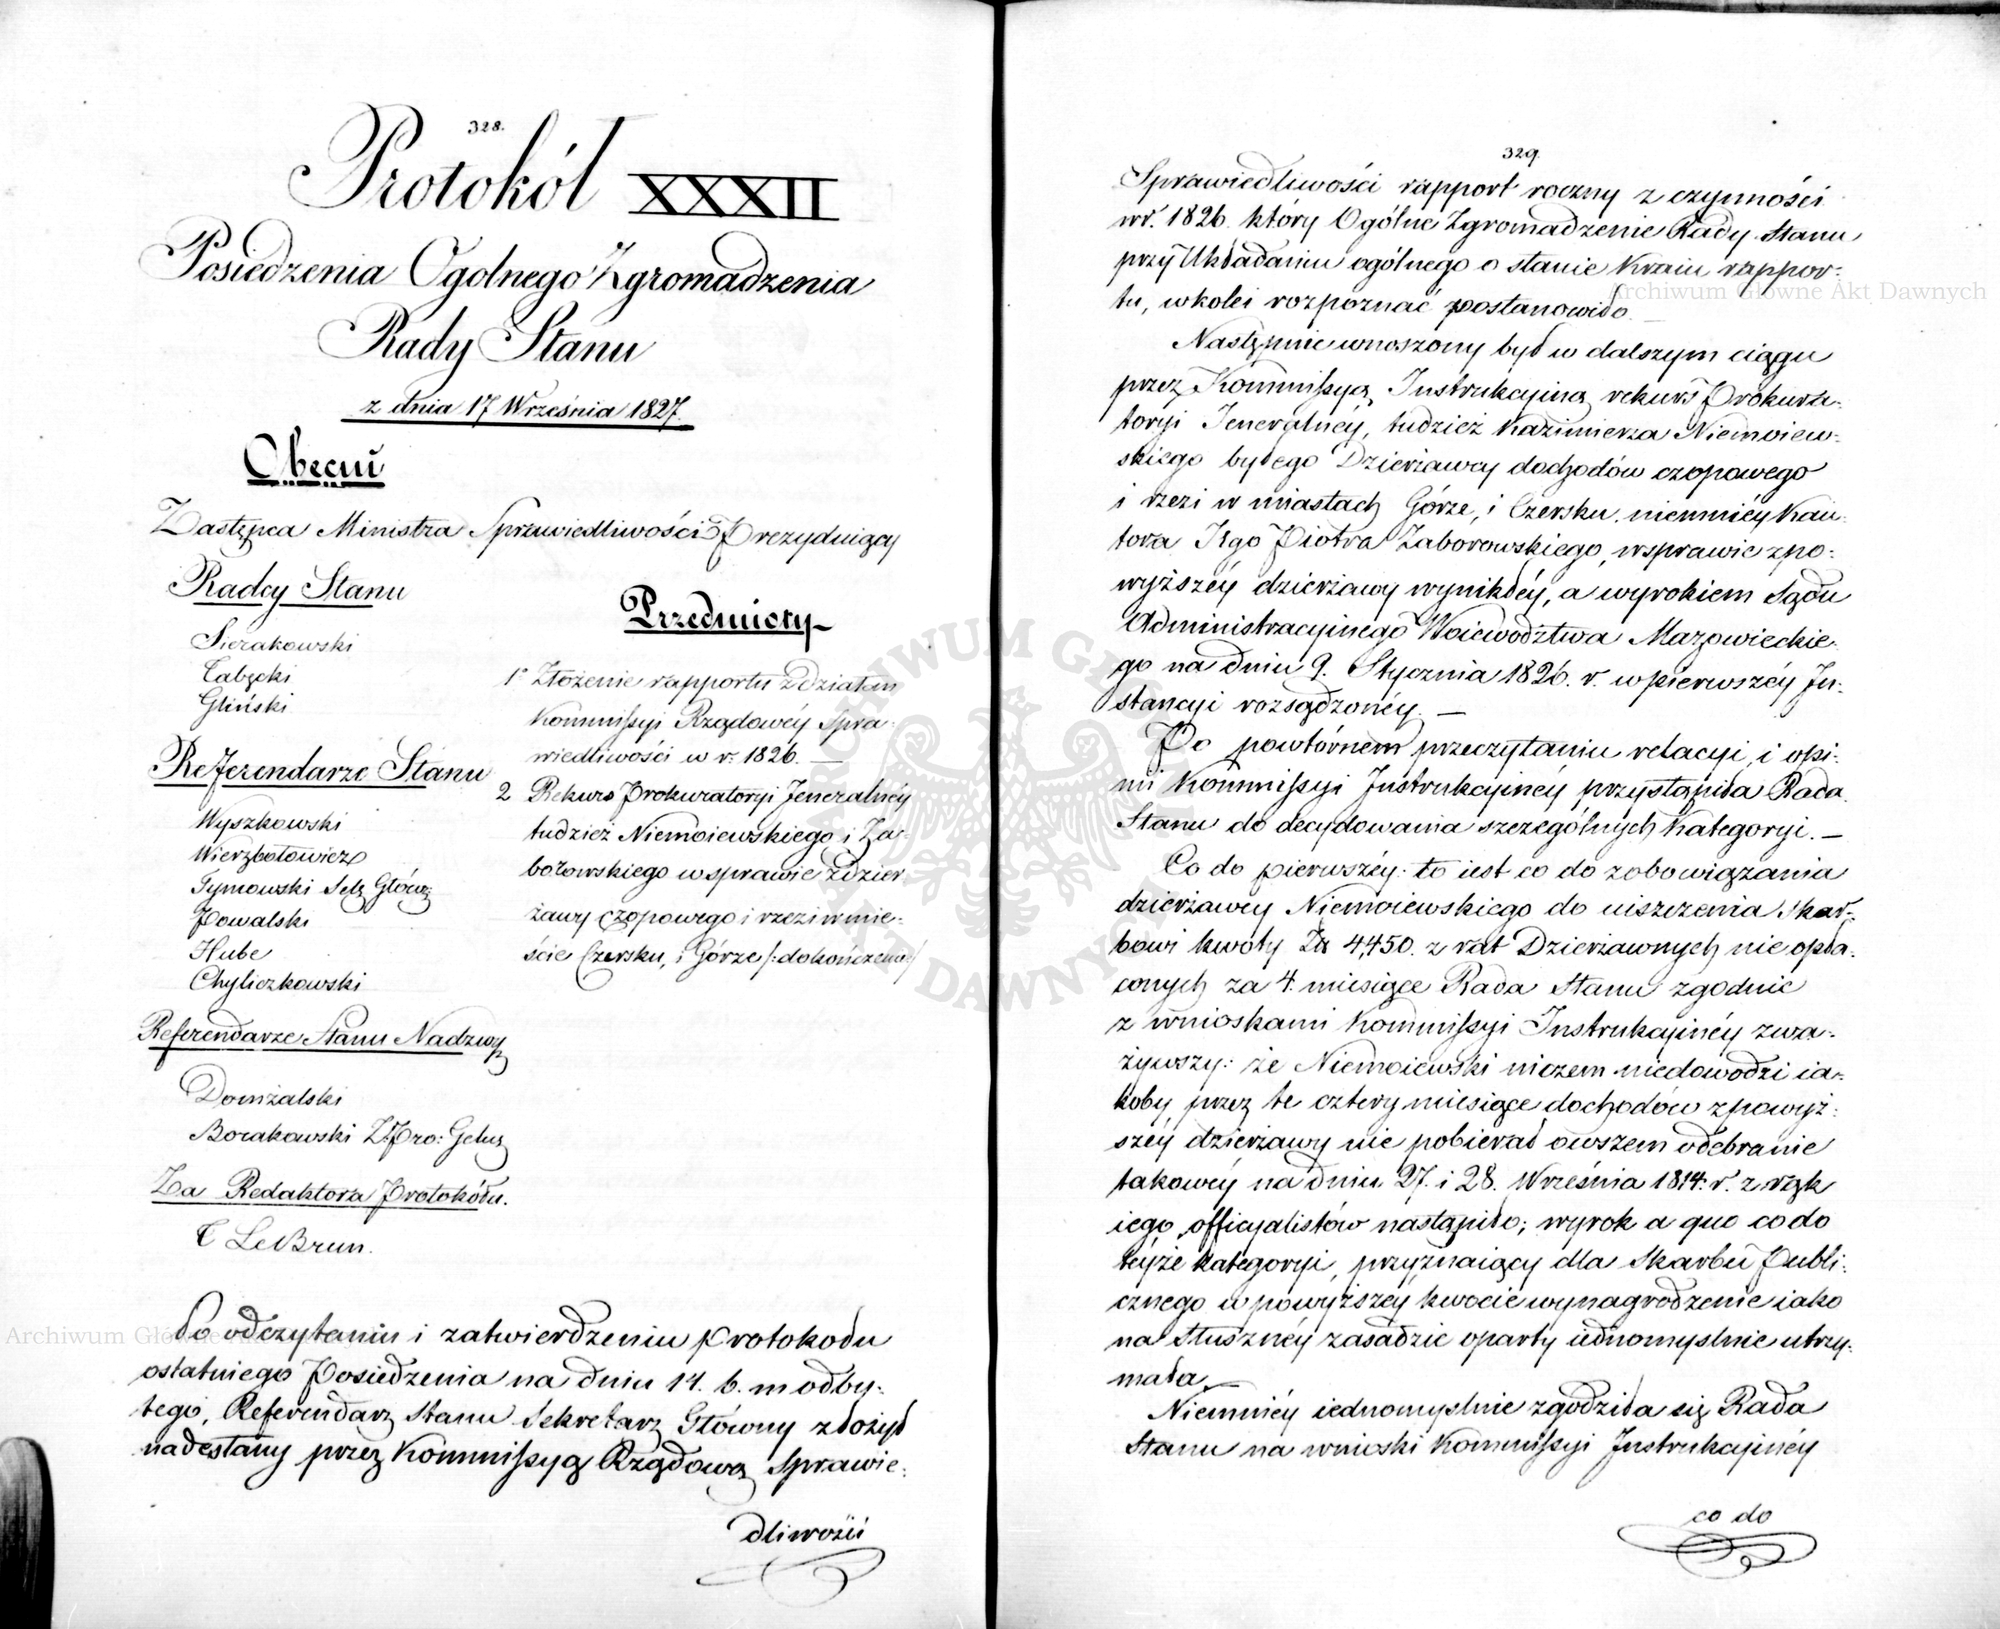 328.
Protokół XXXII
Posiedzenia Ogolnego Zgromadzenia
Rady Stanu
z dnia 17 Września 1827.
Obecni
Zastępca Ministra Sprawiedliwości Prezyduiący
Radcy Stanu
Sierakowski
Łabęcki
Gliński
Referendarze Stanu
Wyszkowski
Wierzbołowicz
Tymowski Sek: Główn:
Powalski
Hube
Chyliczkowski
Referendarze Stanu Nadzwy
Domżalski
Borakowski Z. Pro:
Za Redaktora Protokółu.
LeBrun.
Przedmioty
1° Złożenie rapportu z działań
Kommissyi Rządowéy Spra-
wiedliwości w r. 1826. —
2 Rekurs Prokuratoryi Jeneralnéy
tudzież Niemoiewskiego i Za-
borowskiego w sprawie z dzier
żawy czopowego i rzezi w mie-
ście Czersku, i Górze /:dokończenie/
Po odczytaniu i zatwierdzeniu protokołu
ostatniego Posiedzenia na dniu 14. b. m odby-
tego, Referendarz Stanu Sekretarz Główny złożył
nadesłany przez Kommissyą Rządową Sprawie-
dliwości
329.
Sprawiedliwości rapport roczny z czynności
w r. 1826. który Ogólne Zgromadzenie Rady Stanu
przy układaniu ogólnego o stanie Kraiu rappor-
tu, w kolei rozpoznać postanowiło. —
Następnie wnoszony był w dalszym ciągu
przez Kommissyą Instrukcyiną rekurs Prokura-
toryi Jeneralnéy, tudzież Kazimierza Niemoiew-
skiego byłego Dzierżawcy dochodów czopowego
i rzezi w miastach Górze, i Czersku. niemniéy Kau-
tora Jego Piotra Zaborowskiego, w sprawie z po-
wyższéy dzierżawy wynikłéy, a wyrokiem Sądu
Administracyinego Woiewództwa Mazowieckie-
go na dniu 9. Stycznia 1826. r. w pierwszéy In-
stancyi rozsądzonéy. —
Po powtórnem przeczytaniu relacyi, i opi-
nii Kommissyi Instrukcyinéy przystąpiła Rada
Stanu do decydowania szczególnych kategoryi. —
Co do pierwszéy: to iest co do zobowiązania
dzierżawcy Niemoiewskiego do uiszczenia Skar-
bowi kwoty Zł 4,450. z rat Dzierżawnych nie opła-
conych za 4. miesiące Rada Stanu zgodnie
z wnioskami Kommissyi Instrukcyinéy zwa-
żywszy: że Niemoiewski niczem niedowodzi ia-
koby przez te cztery miesiące dochodów z powyż-
széy dzierżawy nie pobierał owszem odebranie
takowéy na dniu 27. i 28. Września 1814. r. z rąk
iego officyalistów nastąpiło; wyrok a quo co do
téyże kategoryi, przyznaiący dla Skarbu Publi-
cznego w powyższéy kwocie wynagrodzenie iako
na słusznéy zasadzie oparty iednomyslnie utrzy-
mała. —
Niemniéy iednomyslnie zgodziła się Rada
Stanu na wnioski Kommissyi Instrukcyinéy
co do
Archiwum Główne Akt Dawnych
ARCHIWUM GŁÓWNE AKT DAWNYCH